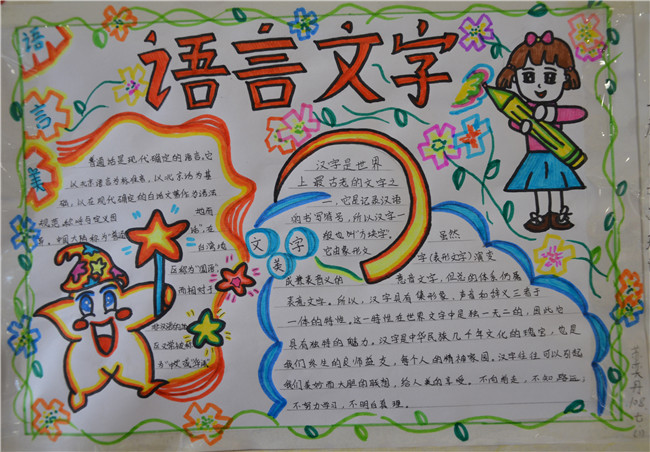 语言文字
语
言
美
普通话是现代确定的语言,它
以北京语言为标准音,以北京话为基
础,以在现代确定的白话文著作为语法
规范。
地而
在
台湾被
称为"国语"
而相对于
文
英
字
汉字是世界
上最古老的文字之
一,它是记录汉语
的书写符号,所以汉字一
般也叫方块字。 虽然
它由象形文 字(表形文字)演变
成兼表音义的 意音文字,但总的体系仍属
表意文字。所以,汉字具有集形象、声音和辞义三者于
一体的特性。这一特性在世界文字中是独一无二的,因此它
具有独特的魅力。汉字是中华民族几千年文化的瑰宝,也是
我们终生的良师益友,每个人的精神家园。汉字往往可以引起
我们美妙而大胆的联想,给人美的享受。不向前走,不知路远;
不努力学习,不明白真理。